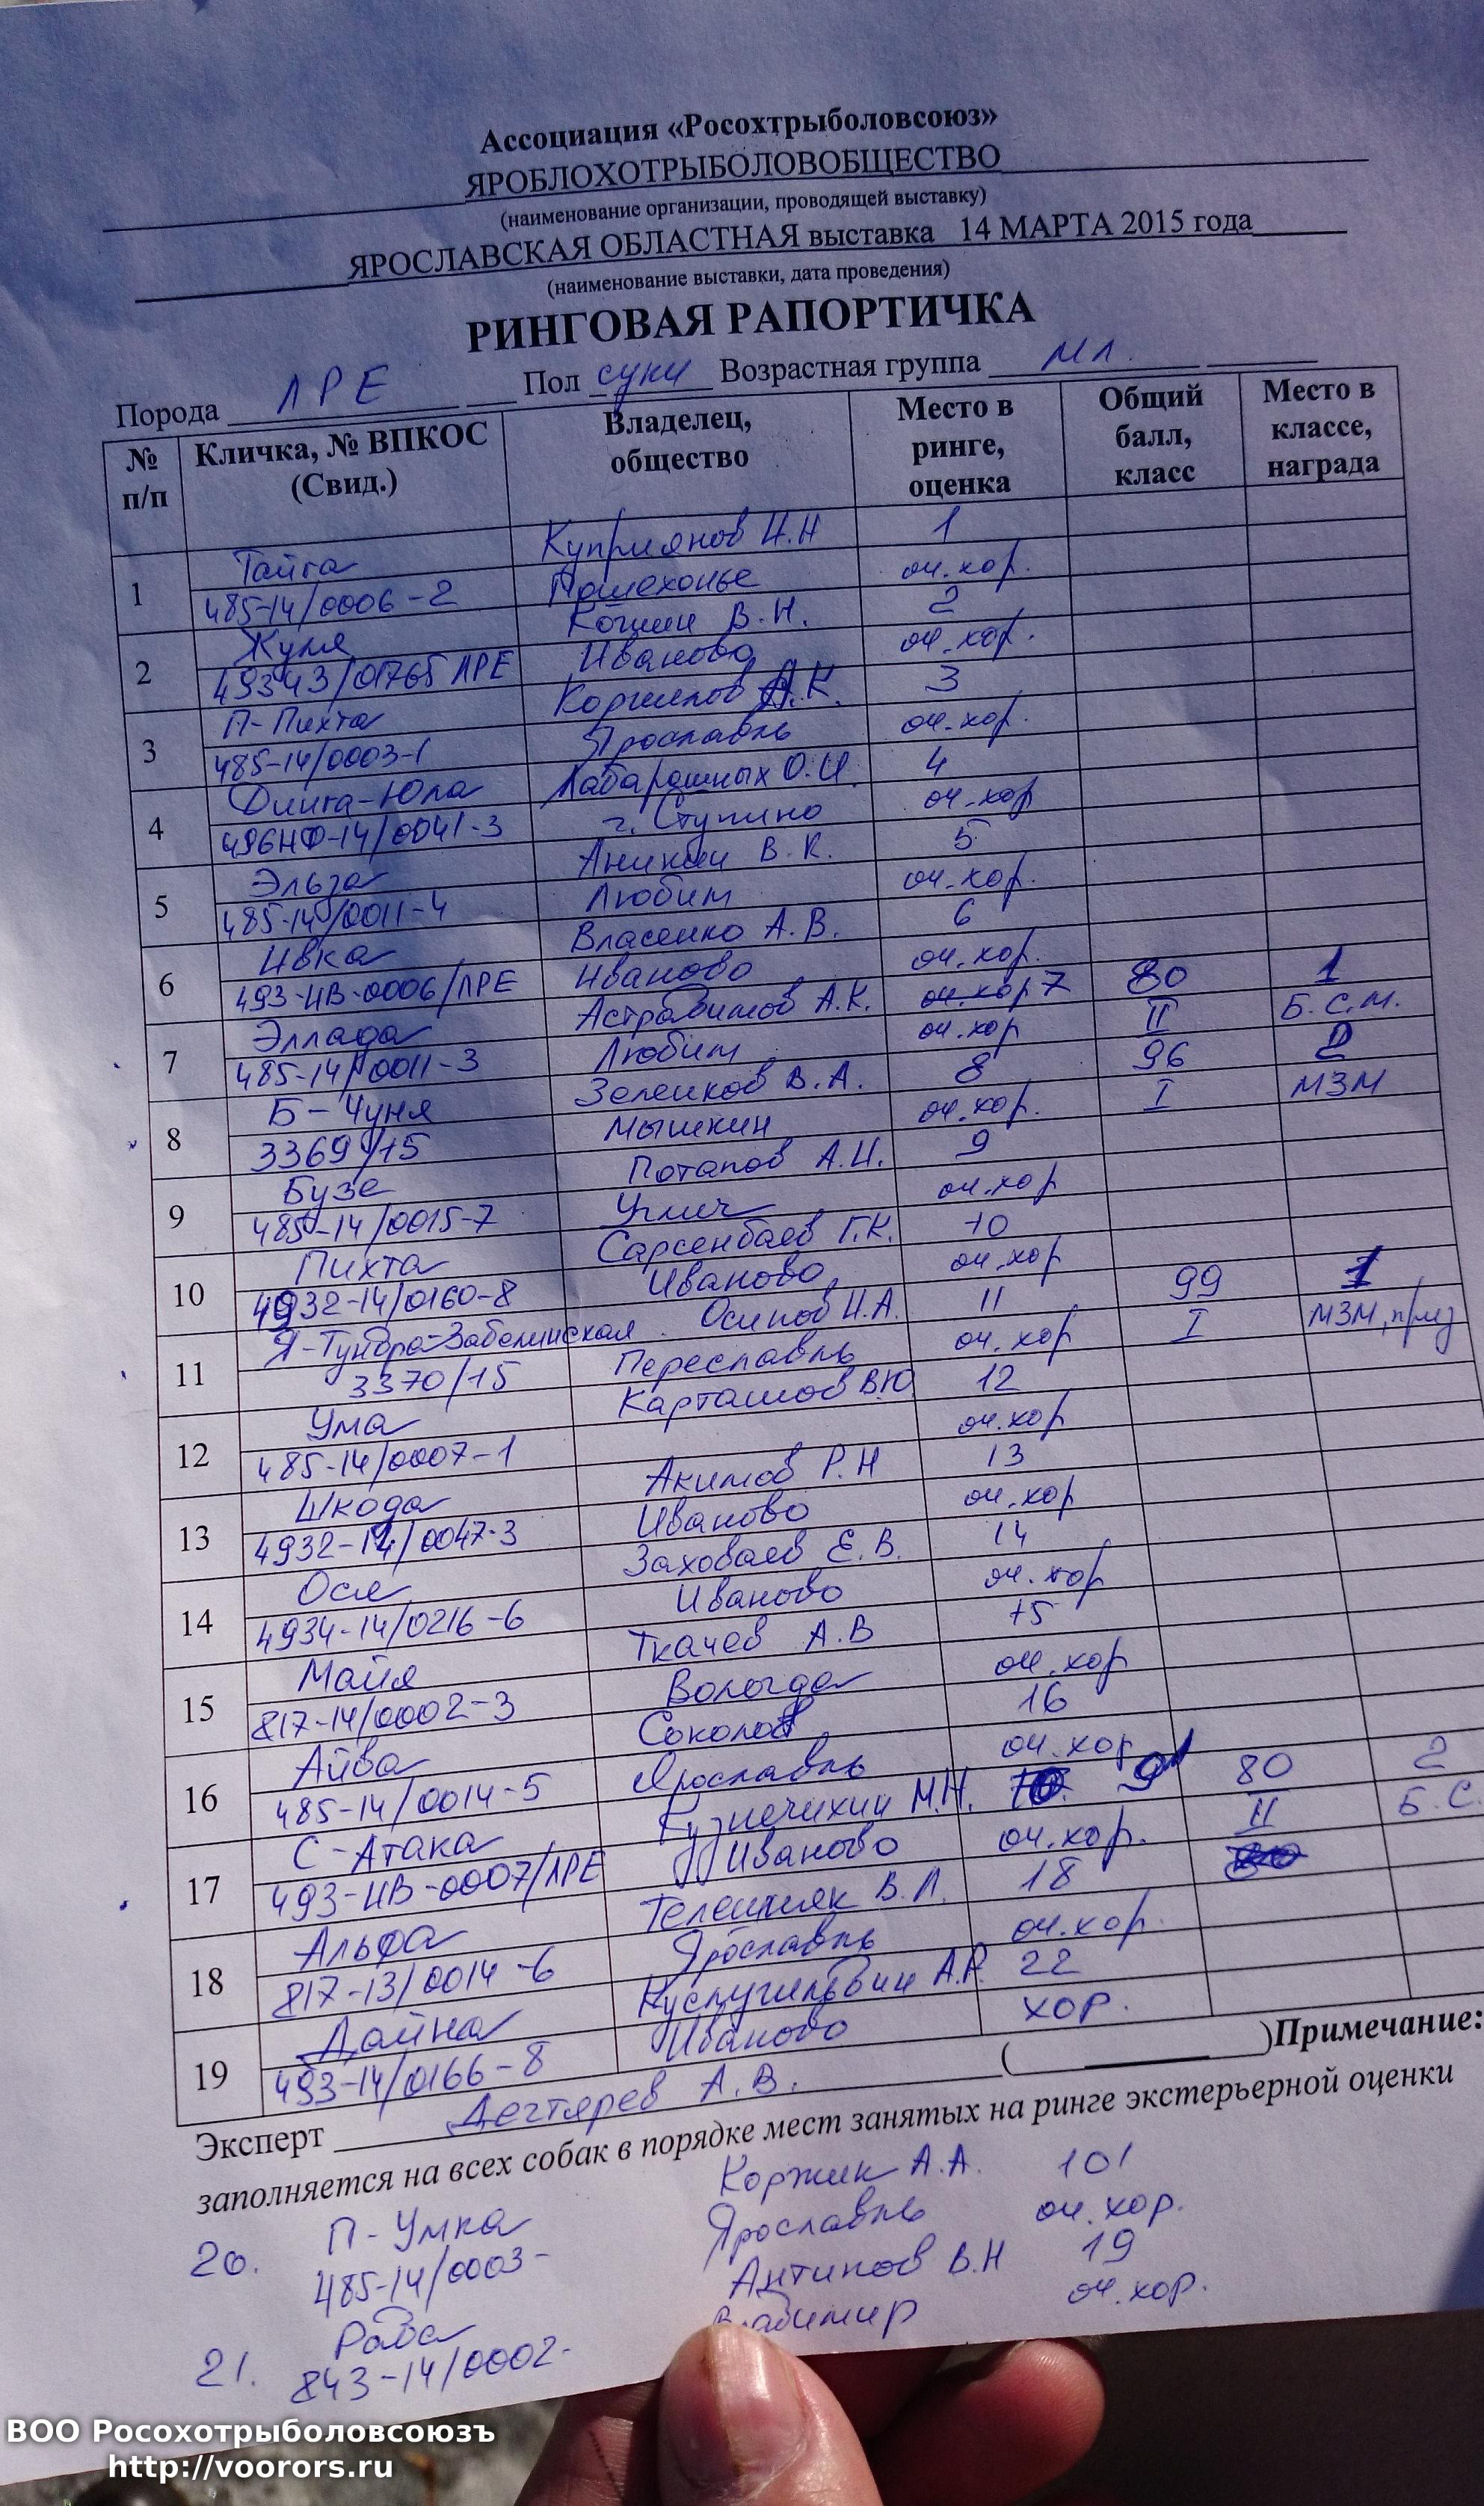 Ассоциация «Росохтрыболовсоюз»
ЯРОБЛОХОТРЫБОЛОВОБЩЕСТВО
(наименование организации, проводящей выставку)
ЯРОСЛАВСКАЯ ОБЛАСТНАЯ выставка 14 МАРТА 2015 года
(наименование выставки, дата проведения)
РИНГОВАЯ РАПОРТИЧКА
Порода ЛРЕ Пол суки Возрастная группа мл.
№ п/п Кличка, № ВПКОС (Свид.) Владелец, общество Место в ринге, оценка Общий балл, класс Место в классе, награда
1 Тайга Куприянов Н.Н 1
485-14/0006-2 Пошехонье оч.хор.
2 Жуля В.Н. 2
49343/01765 ЛРЕ Иваново оч.хор.
3 П-Пихта А.К. 3
485-14/0003-1 Ярославль оч.хор.
4 Динга-Юла О.И. 4
496НФ-14/0041-3 г. Ступино оч.хор
5 Эльза Аникин В.К. 5
485-14/0011-4 Любим оч.хор.
6 Ивка Власенко А.В. 6
493-ИВ-0006/ЛРЕ Иваново оч.хор.
7 Эллада А.К. 7 80 1
485-14/0011-3 Любим оч.хор II Б.С.М.
8 Б-Чуня Зеленков В.А. 8 96 2
3369/15 Мышкин оч.хор. I МЗМ
9 Бузе Потапов А.И. 9
485-14/0015-7 Углич оч.хор
10 Пихта Сарсенбаев Г.К. 10
4932-14/0160-8 Иваново оч.хор
11 Я-Тундра-Заболинская Осипов Н.А. 11 99 1
3370/15 Переславль оч.хор I МЗМ, приз
12 Ума Карташов В.Ю 12
485-14/0007-1 оч.хор
13 Шкода Акимов Р.Н 13
4932-14/0047-3 Иваново оч.хор
14 Ося Заховаев Е.В. 14
4934-14/0216-6 Иваново оч.хор
15 Майя Ткачев А.В 15
817-14/0002-3 Вологда оч.хор
16 Айва Соколов 16
485-14/0014-5 Ярославль оч.хор
17 С-Атака Кузнечихин М.Н. 80 2
493-ИВ-0007/ЛРЕ Иваново оч.хор. II Б.С.
18 Альфа В.Л. 18
817-13/0014-6 Ярославль оч.хор.
19 Дайна А.Р. 22
493-14/0166-8 Иваново хор.
Эксперт Дегтярев А.В. ( )Примечание:
заполняется на всех собак в порядке мест занятых на ринге экстерьерной оценки
20. П-Умка Коржик А.А. 101
485-14/0003- Ярославль оч.хор.
21. Антипов В.Н 19
843-14/0002- Владимир оч.хор.
ВОО Росохотрыболовсоюзъ
http://voorors.ru